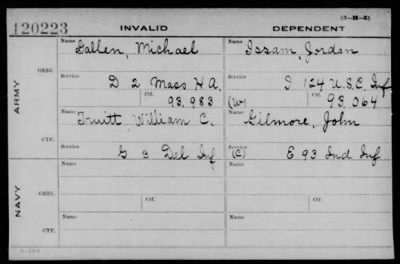 120223 INVALID DEPENDENT (3-H-3)
Name Name
Gallen, Michael Issam, Jordan
ORIG. Service Service
D 2 Mass H A. I 124 U.S.C. Inf
ARMY Ctf. 93,983 (W) Ctf. 93,064
Name Name
Truitt, William C. Gilmore, John
CTF. Service Service
G 3 Del Inf (C) E 93 Ind Inf
Name Name
NAVY ORIG. Ctf. Ctf.
Name Name
CTF.